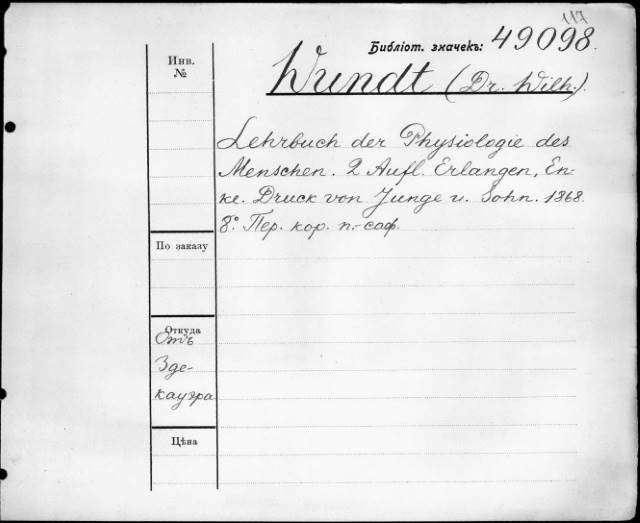 117
Библіот. значекъ: 49098.
Инв.
№
Wundt (Dr. Wilh.).
Lehrbuch der Physiologie des
Menschen. 2 Aufl. Erlangen, En-
ke. Druck von Junge u. Sohn. 1868.
8° Пер. кор. п.-саф.
По заказу
Откуда
Отъ
Зде-
кауэра
Цѣна